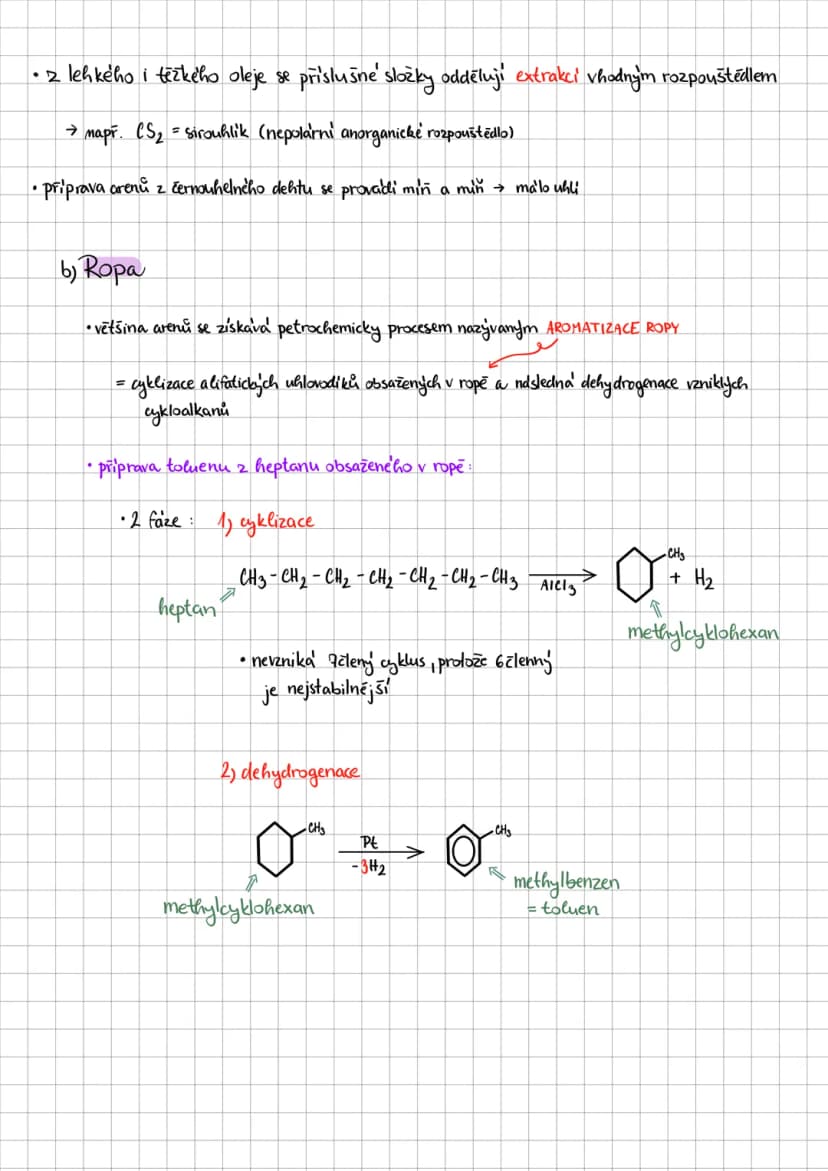 • z lehkého i těžkého oleje se příslušné složky oddělují extrakcí vhodným rozpouštědlem
→ např. CS₂ = sirouhlík (nepolární anorganické rozpouštědlo)
• příprava arenů z černouhelného dehtu se provádí míň a míň → málo uhlí
b) Ropa
• většina arenů se získává petrochemicky procesem nazývaným AROMATIZACE ROPY
= cyklizace alifatických uhlovodíků obsažených v ropě a následná dehydrogenace vzniklých
cykloalkanů
• příprava toluenu z heptanu obsaženého v ropě:
• 2 fáze: 1) cyklizace
CH₃ - CH₂ - CH₂ - CH₂ - CH₂ - CH₂ - CH₃ → AlCl₃ CH₃ + H₂
heptan
methylcyklohexan
• nevzniká 7člený cyklus, protože 6členný
je nejstabilnější
2) dehydrogenace
CH₃ Pt → -3H₂ CH₃
methylcyklohexan
methylbenzen
= toluen